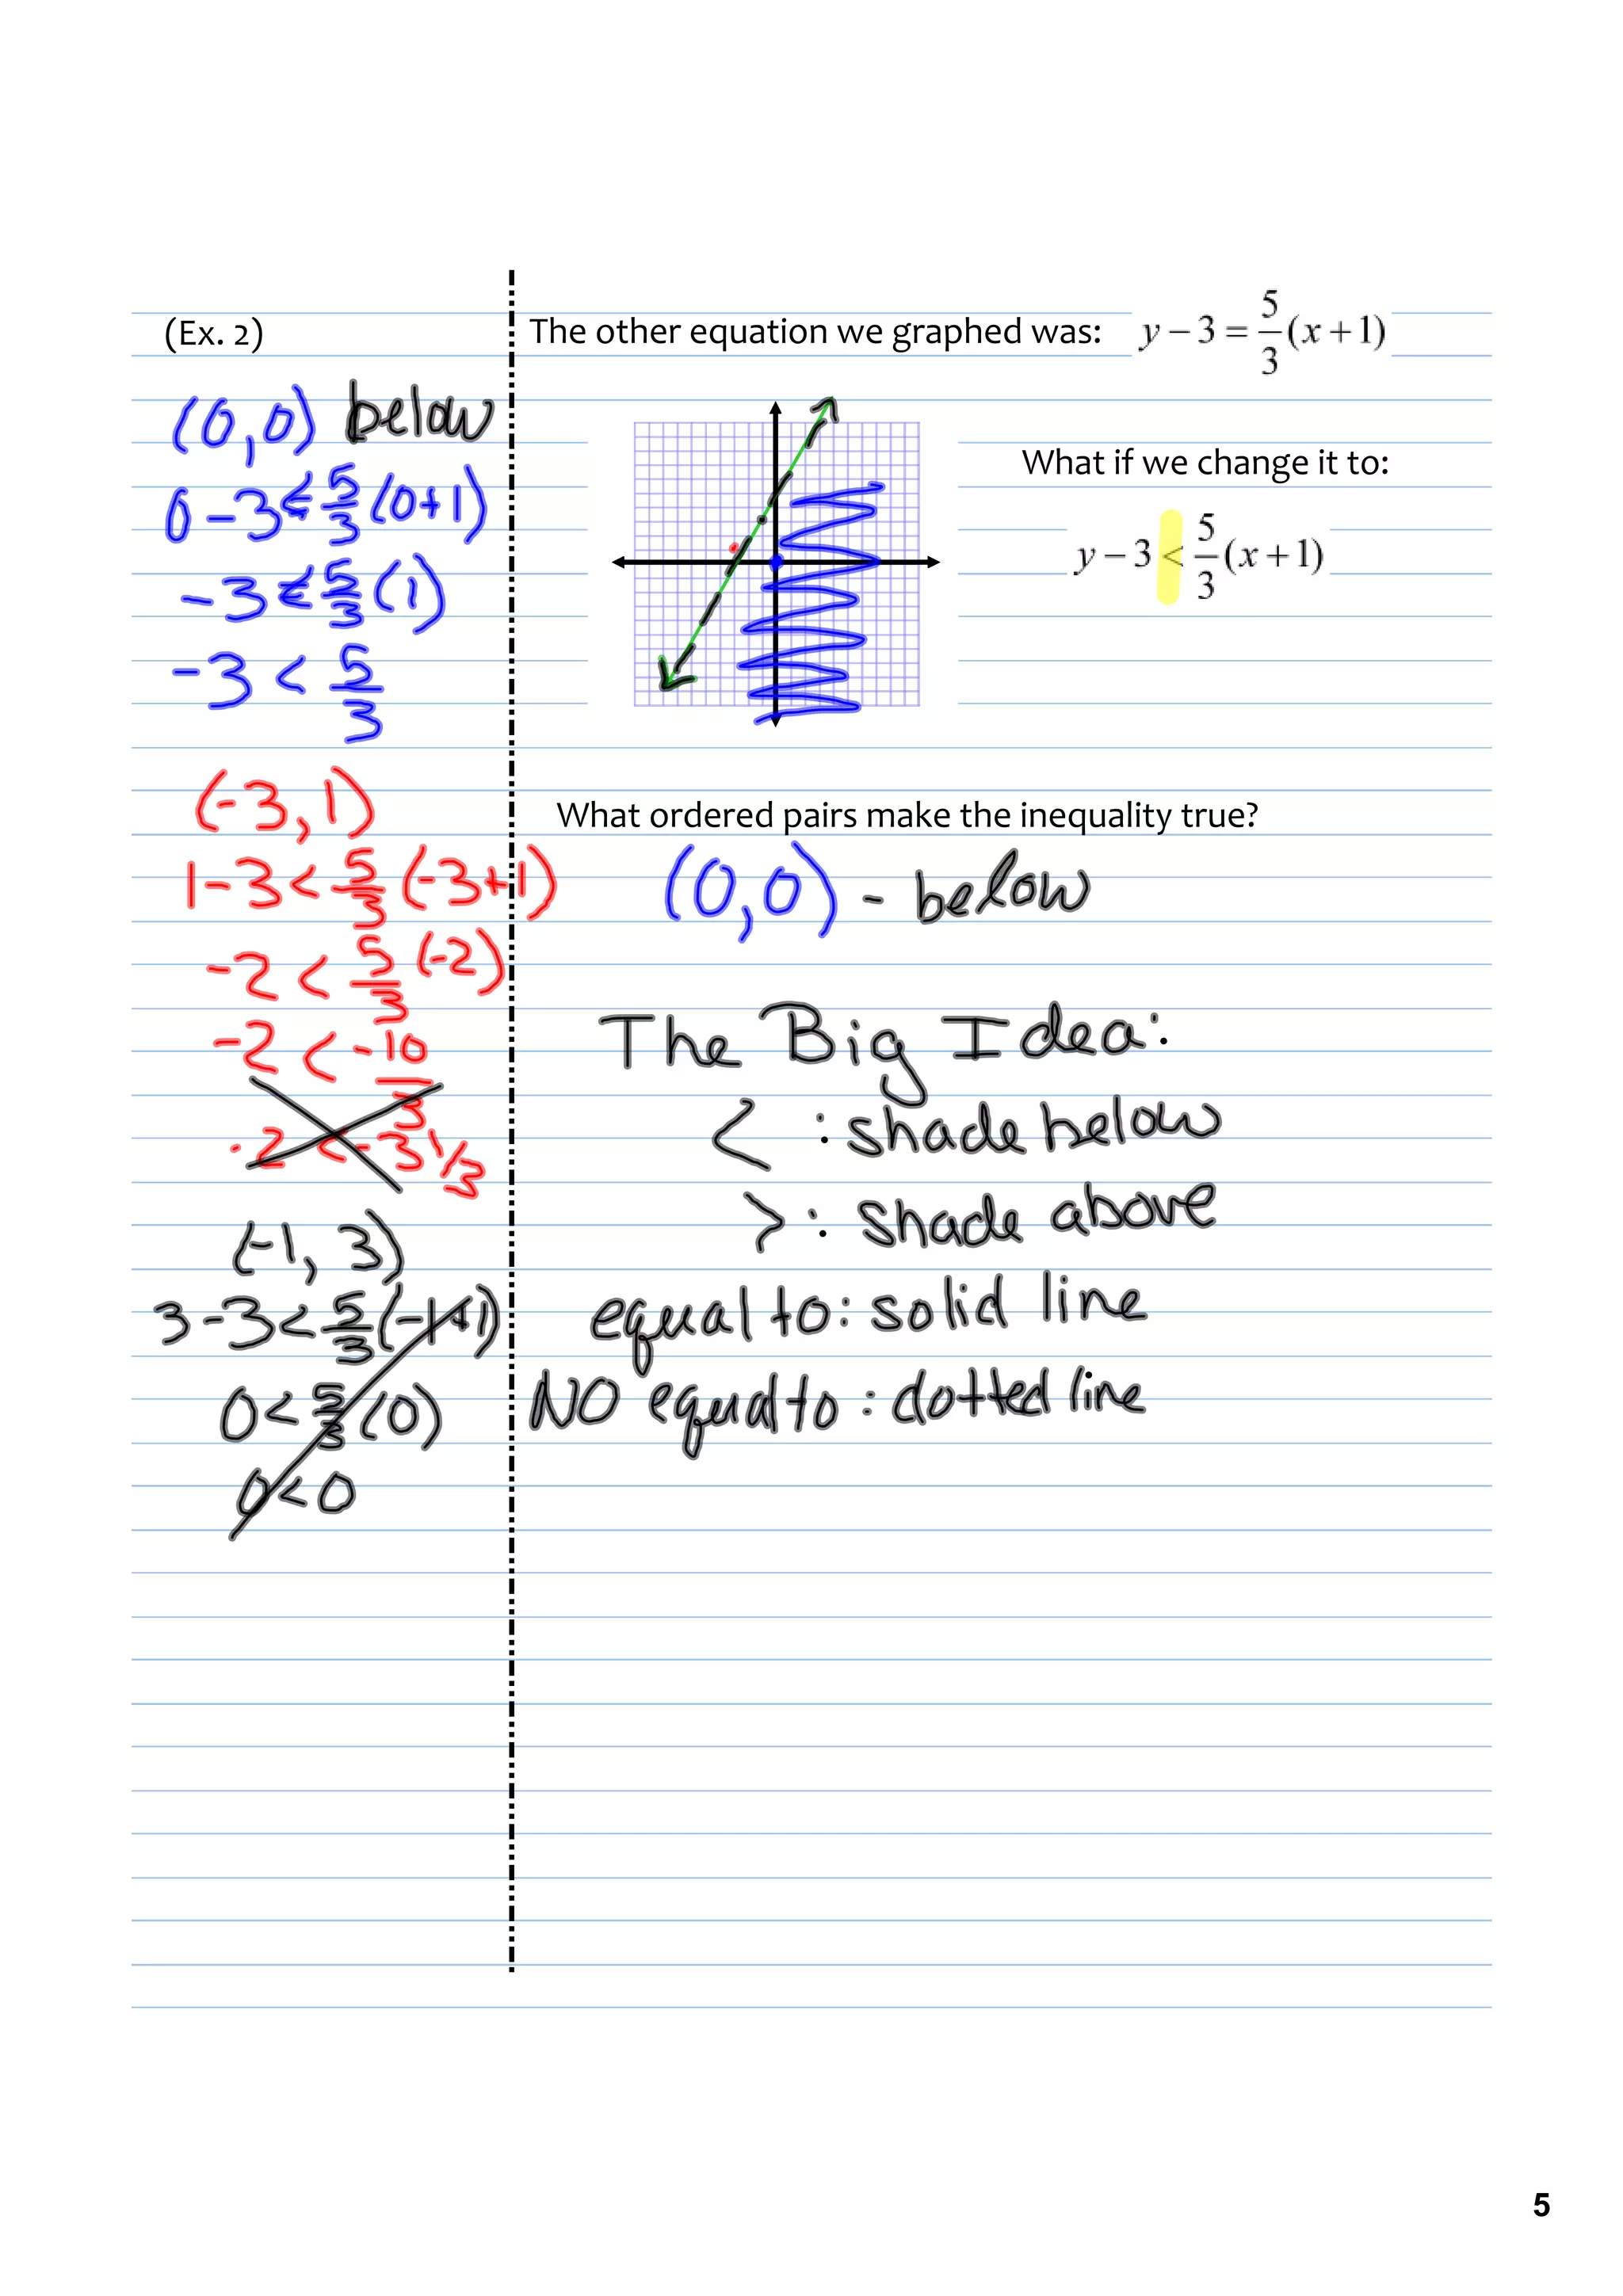 (Ex. 2)
The other equation we graphed was: y − 3 = 5/3 (x + 1)
(0,0) below
0 - 3 < 5/3 (0+1)
-3 < 5/3 (1)
-3 < 5/3
What if we change it to:
y − 3 < 5/3 (x + 1)
(-3, 1)
1 - 3 < 5/3 (-3+1)
-2 < 5/3 (-2)
-2 < -10/3
-2 < -3 1/3
(-1, 3)
3 - 3 < 5/3 (-1+1)
0 < 5/3 (0)
0 < 0
What ordered pairs make the inequality true?
(0,0) - below
The Big Idea:
< : shade below
> : shade above
equal to: solid line
NO equal to: dotted line
5